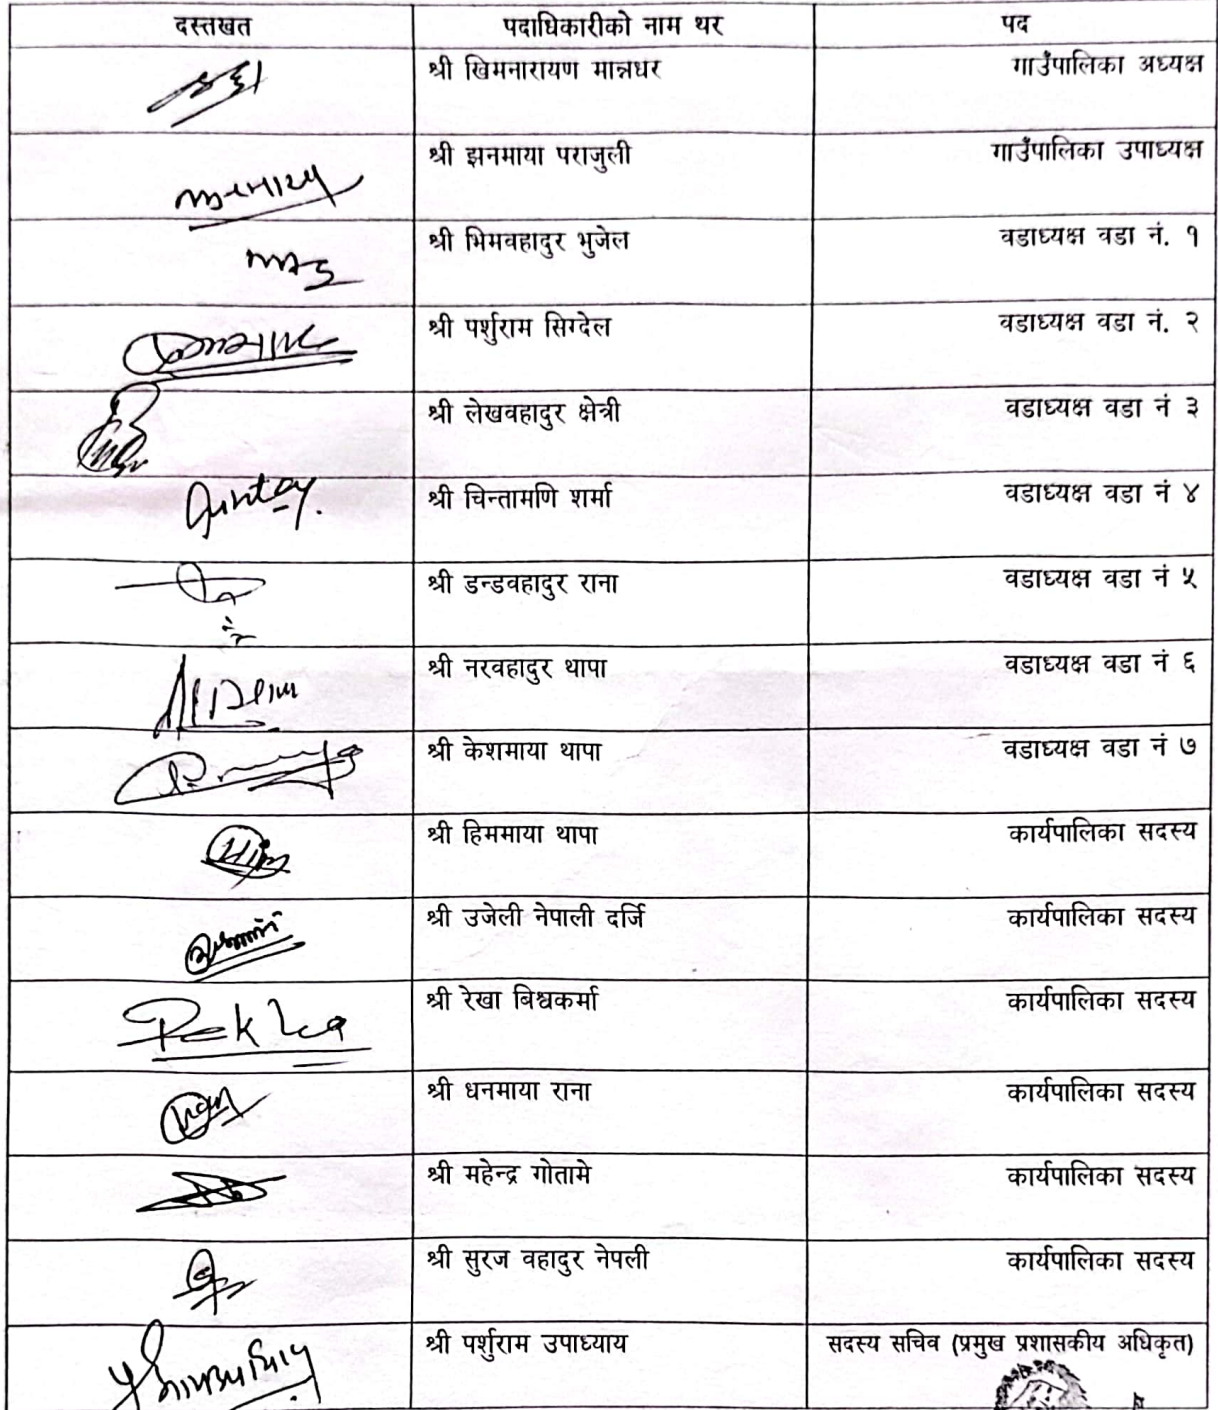 दस्तखत पदाधिकारीको नाम थर पद
श्री खिमनारायण मान्नधर गाउँपालिका अध्यक्ष
श्री झनमाया पराजुली गाउँपालिका उपाध्यक्ष
श्री भिमवहादुर भुजेल वडाध्यक्ष वडा नं. १
श्री पर्शुराम सिग्देल वडाध्यक्ष वडा नं. २
श्री लेखवहादुर क्षेत्री वडाध्यक्ष वडा नं ३
श्री चिन्तामणि शर्मा वडाध्यक्ष वडा नं ४
श्री डन्डवहादुर राना वडाध्यक्ष वडा नं ५
श्री नरवहादुर थापा वडाध्यक्ष वडा नं ६
श्री केशमाया थापा वडाध्यक्ष वडा नं ७
श्री हिममाया थापा कार्यपालिका सदस्य
श्री उजेली नेपाली दर्जि कार्यपालिका सदस्य
Rekha श्री रेखा बिश्वकर्मा कार्यपालिका सदस्य
श्री धनमाया राना कार्यपालिका सदस्य
श्री महेन्द्र गोतामे कार्यपालिका सदस्य
श्री सुरज वहादुर नेपली कार्यपालिका सदस्य
श्री पर्शुराम उपाध्याय सदस्य सचिव (प्रमुख प्रशासकीय अधिकृत)